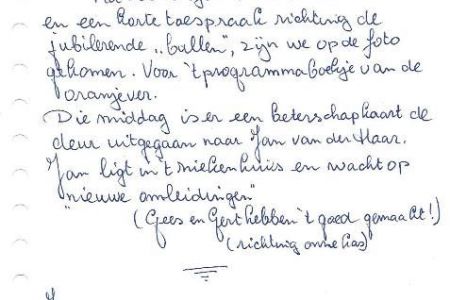 en een korte toespraak richting de
jubilerende „ballen", zijn we op de foto
gekomen. Voor 't programmaboekje van de
oranjever.
Die middag is er een beterschapkaart de
deur uitgegaan naar Jan van der Haar.
Jan ligt in 't ziekenhuis en wacht op
"nieuwe omleidingen"
(Gees en Gert hebben 't goed gemaakt!)
(richting onne kas)